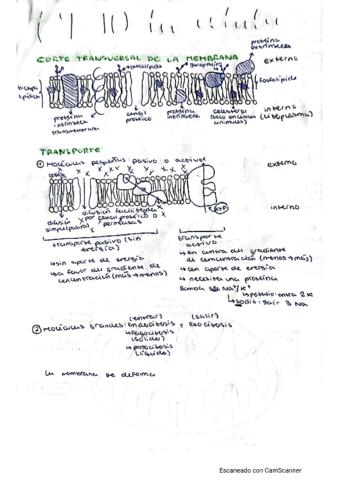 CORTE TRANSVERSAL DE LA MEMBRANA
proteína extrínseca
externo
bicapa lipídica
fosfolípido
proteína intrínseca
canal proteico
proteína intrínseca
colesterol
(solo en células animales)
interno (citoplasma)
TRANSPORTE
① Moléculas pequeñas: pasivo o activo
externo
ATP
interno
difusión simple (poros)
difusión facilitada
por canal proteico o permeasas
transporte pasivo (sin energía)
↳ sin aporte de energía
↳ a favor del gradiente de concentración (más → menos)
transporte activo
↳ en contra del gradiente de concentración (menos → más)
↳ con aporte de energía
↳ necesita una proteína
Bomba Na⁺/K⁺
↳ potasio: entra 2 K
↳ sodio: salir 3 Na
(entrar) (salir)
② Moléculas grandes: endocitosis y exocitosis
↳ fagocitosis (sólido)
↳ pinocitosis (líquido)
La membrana se deforma
Escaneado con CamScanner